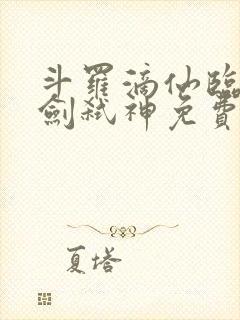 斗羅滴仙臨
劍弒神免費
夏塔